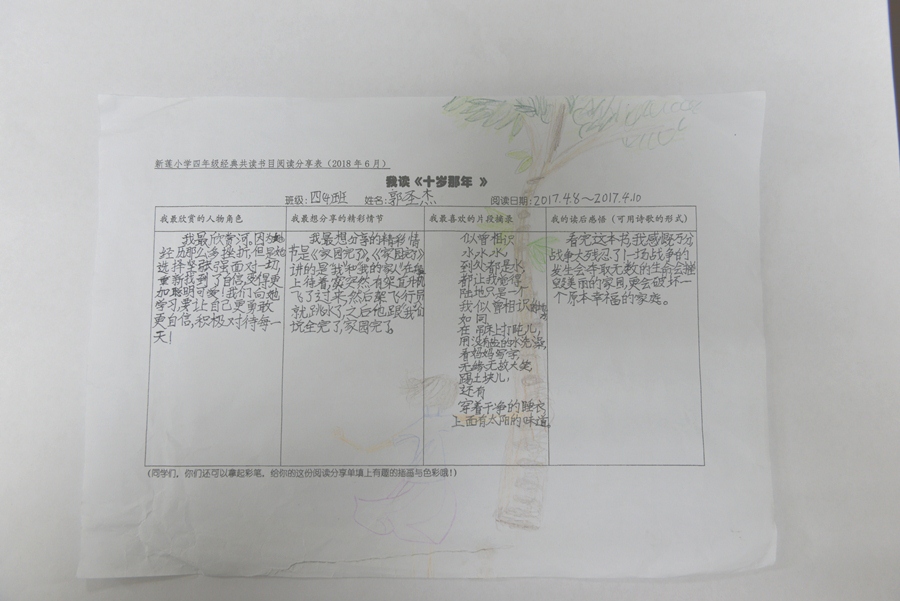 新莲小学四年级经典共读书目阅读分享表（2018年6月）
我读《十岁那年 》
班级:四年班 姓名:郭圣杰 阅读日期:2017.4.8～2017.4.10
我最欣赏的人物角色
我最欣赏河。因为她
经历那么多挫折,但是她
选择坚强面对一切,
重新找到了自信,变得更
加聪明可爱!我们向她
学习,要让自己更勇敢
更自信,积极对待每一
天!
我最想分享的精彩情节
我最想分享的精彩情
节是《家园完了》,《家园完了》
讲的是我和我的家人在船
上待着,突然有架直升机
飞了过来,然后架飞行员
就跳水了,之后他跟我们
说全完了,家园完了。
我最喜欢的片段摘录
似曾相识
水,水,水,
到处都是水,
都让我觉得
陆地只是一个
我似曾相识的地方
如同
在吊床上打盹儿,
用没有脸的水洗澡,
看妈妈写字,
无缘无故大笑,
踢土块儿,
还有
穿着干净的睡衣
上面有太阳的味道,
我的读后感语（可用诗歌的形式）
看完这本书,我感慨万分
战争太残忍了!一场战争的
发生会夺取无数的生命会摧
毁美丽的家园,更会破坏一
个原本幸福的家庭。
(同学们，你们还可以拿起彩笔，给你的这份阅读分享单填上有趣的插画与色彩哦!)